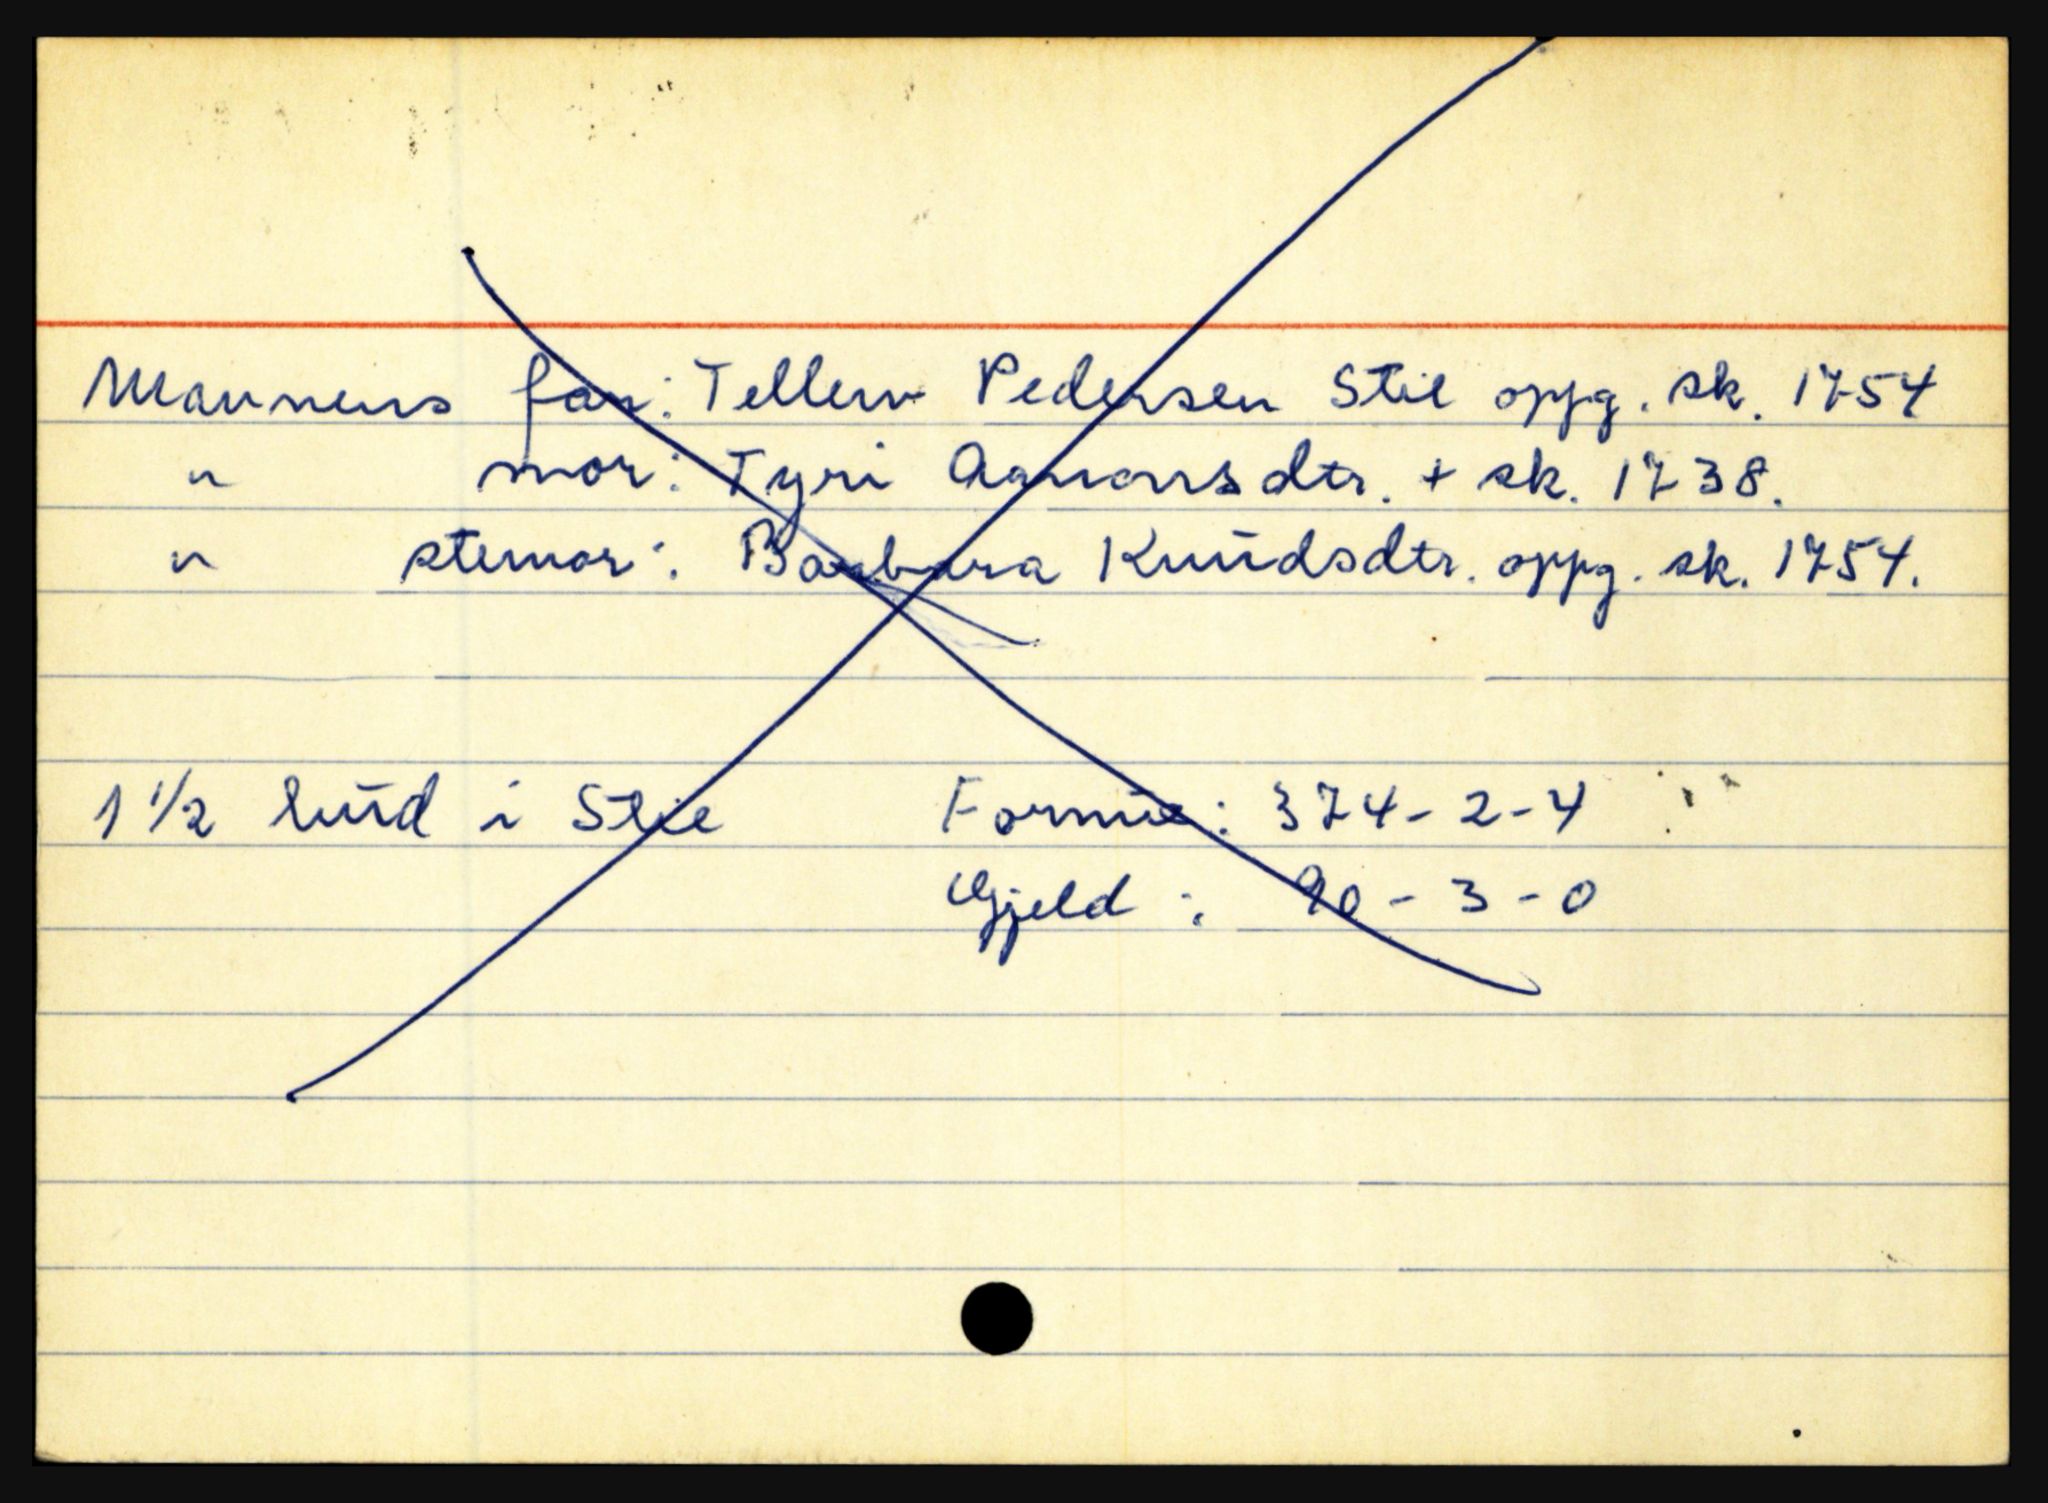 Mannens far: Tellev Pedersen Stie oppg. sk. 1754
" mor: Tyri Aanonsdtr. + sk. 1738.
" stemor: Barbara Knudsdtr. oppg. sk. 1754.
1 1/2 hud i Stie Formue: 374-2-4
Gjeld: 90-3-0